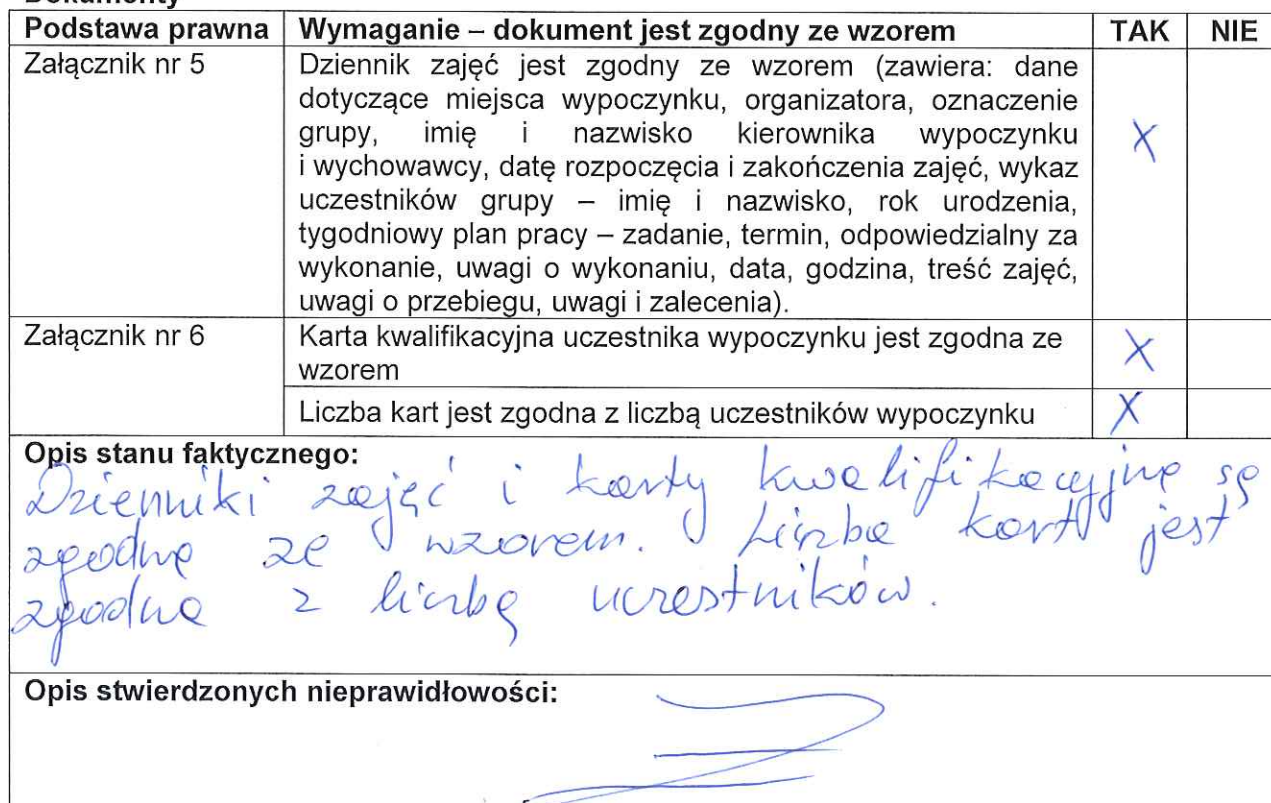 Dokumenty
Podstawa prawna | Wymaganie – dokument jest zgodny ze wzorem | TAK | NIE
Załącznik nr 5 | Dziennik zajęć jest zgodny ze wzorem (zawiera: dane
dotyczące miejsca wypoczynku, organizatora, oznaczenie
grupy, imię i nazwisko kierownika wypoczynku
i wychowawcy, datę rozpoczęcia i zakończenia zajęć, wykaz
uczestników grupy – imię i nazwisko, rok urodzenia,
tygodniowy plan pracy – zadanie, termin, odpowiedzialny za
wykonanie, uwagi o wykonaniu, data, godzina, treść zajęć,
uwagi o przebiegu, uwagi i zalecenia). | X
Załącznik nr 6 | Karta kwalifikacyjna uczestnika wypoczynku jest zgodna ze
wzorem | X
Liczba kart jest zgodna z liczbą uczestników wypoczynku | X
Opis stanu faktycznego:
Dzienniki zajęć i karty kwalifikacyjne są
zgodne ze wzorem. Liczba kart jest
zgodna z liczbą uczestników.
Opis stwierdzonych nieprawidłowości: